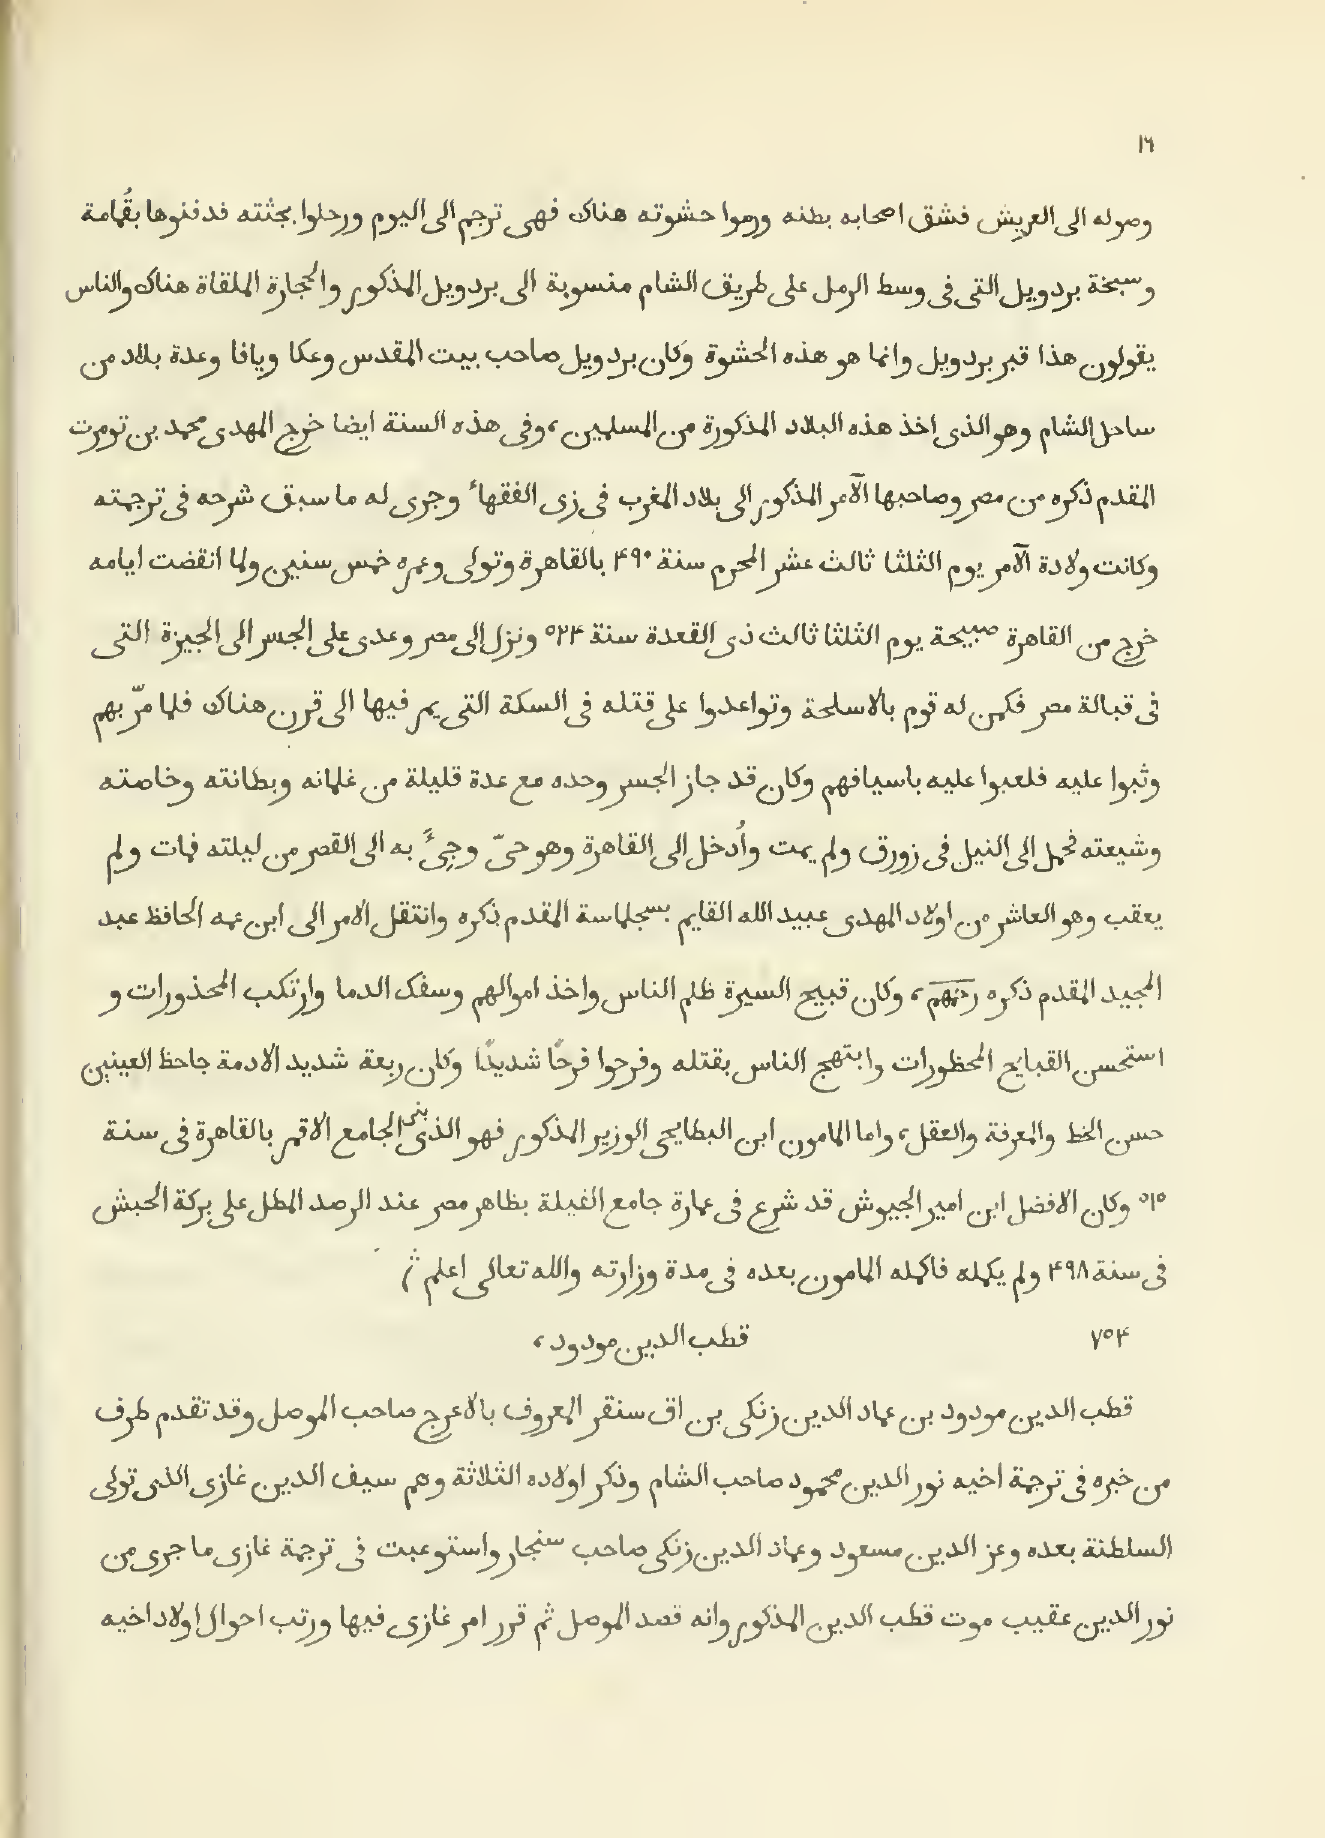 ١٦
وصوله الى العريش فشق اصحابه بطنه ورموا حشوته هناك فهى ترجم الى اليوم ورحلوا بجثته فدفنوها بقُمامة
وسبخة بردويل التى فى وسط الرمل على طريق الشام منسوبة الى بردويل المذكور والحجارة الملقاة هناك والناس
يقولون هذا قبر بردويل وانما هو هذه الحشوة وكان بردويل صاحب بيت المقدس وعكا ويافا وعدة بلاد من
ساحل الشام وهو الذى اخذ هذه البلاد المذكورة من المسلمين، وفى هذه السنة ايضا خرج المهدى محمد بن تومرت
المقدم ذكره من مصر وصاحبها الآمر المذكور الى بلاد المغرب فى زى الفقهاء وجرى له ما سبق شرحه فى ترجمته
وكانت ولادة الآمر يوم الثلثا ثالث عشر المحرم سنة ۴۹۰ بالقاهرة وتولى وعمره خمس سنين ولما انقضت ايامه
خرج من القاهرة صبيحة يوم الثلثا ثالث ذى القعدة سنة ۵۲۴ ونزل الى مصر وعدى على الجسر الى الجيزة التى
فى قبالة مصر فكمن له قوم بالاسلحة وتواعدوا على قتله فى السكة التى يمر فيها الى قرن هناك فلما مرّ بهم
وثبوا عليه فلعبوا عليه باسيافهم وكان قد جاز الجسر وحده مع عدة قليلة من غلمانه وبطانته وخاصته
وشيعته فحمل الى النيل فى زورق ولم يمت وأُدخل الى القاهرة وهو حىّ وجِىءَ به الى القصر من ليلته فمات ولم
يعقب وهو العاشر من اولاد المهدى عبيد الله القايم بسجلماسة المقدم ذكره وانتقل الامر الى ابن عمه الحافظ عبد
المجيد المقدم ذكره رحمهم، وكان قبيح السيرة ظلم الناس واخذ اموالهم وسفك الدما وارتكب المحذورات و
استحسن القبايح المحظورات وابتهج الناس بقتله وفرحوا فرحًا شديدًا وكان ربعة شديد الادمة جاحظ العينين
حسن الخط والمعرفة والعقل، واما المامون ابن البطايحى الوزير المذكور فهو الذى بنى الجامع الاقمر بالقاهرة فى سنة
۵۱۵ وكان الافضل ابن امير الجيوش قد شرع فى عمارة جامع الفيلة بظاهر مصر عند الرصد المطل على بركة الحبش
فى سنة ۴۹۸ ولم يكمله فاكمله المامون بعده فى مدة وزارته والله تعالى اعلم
۷۵۴ قطب الدين مودود،
قطب الدين مودود بن عماد الدين زنكى بن اق سنقر المعروف بالاعرج صاحب الموصل وقد تقدم طرف
من خبره فى ترجمة اخيه نور الدين محمود صاحب الشام وذكر اولاده الثلاثة وهم سيف الدين غازى الذى تولى
السلطنة بعده وعز الدين مسعود وعماد الدين زنكى صاحب سنجار واستوعبت فى ترجمة غازى ما جرى من
نور الدين عقيب موت قطب الدين المذكور وانه قصد الموصل ثم قرر امر غازى فيها ورتب احوال اولاد اخيه